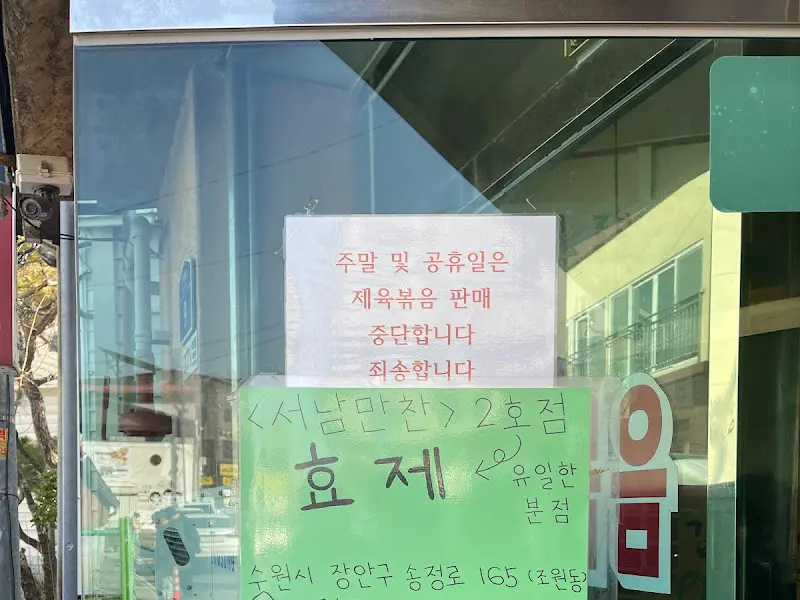 주말 및 공휴일은
제육볶음 판매
중단합니다
죄송합니다
<서남만찬> 2호점
효제
유일한
분점
수원시 장안구 송정로 165 (조원동)